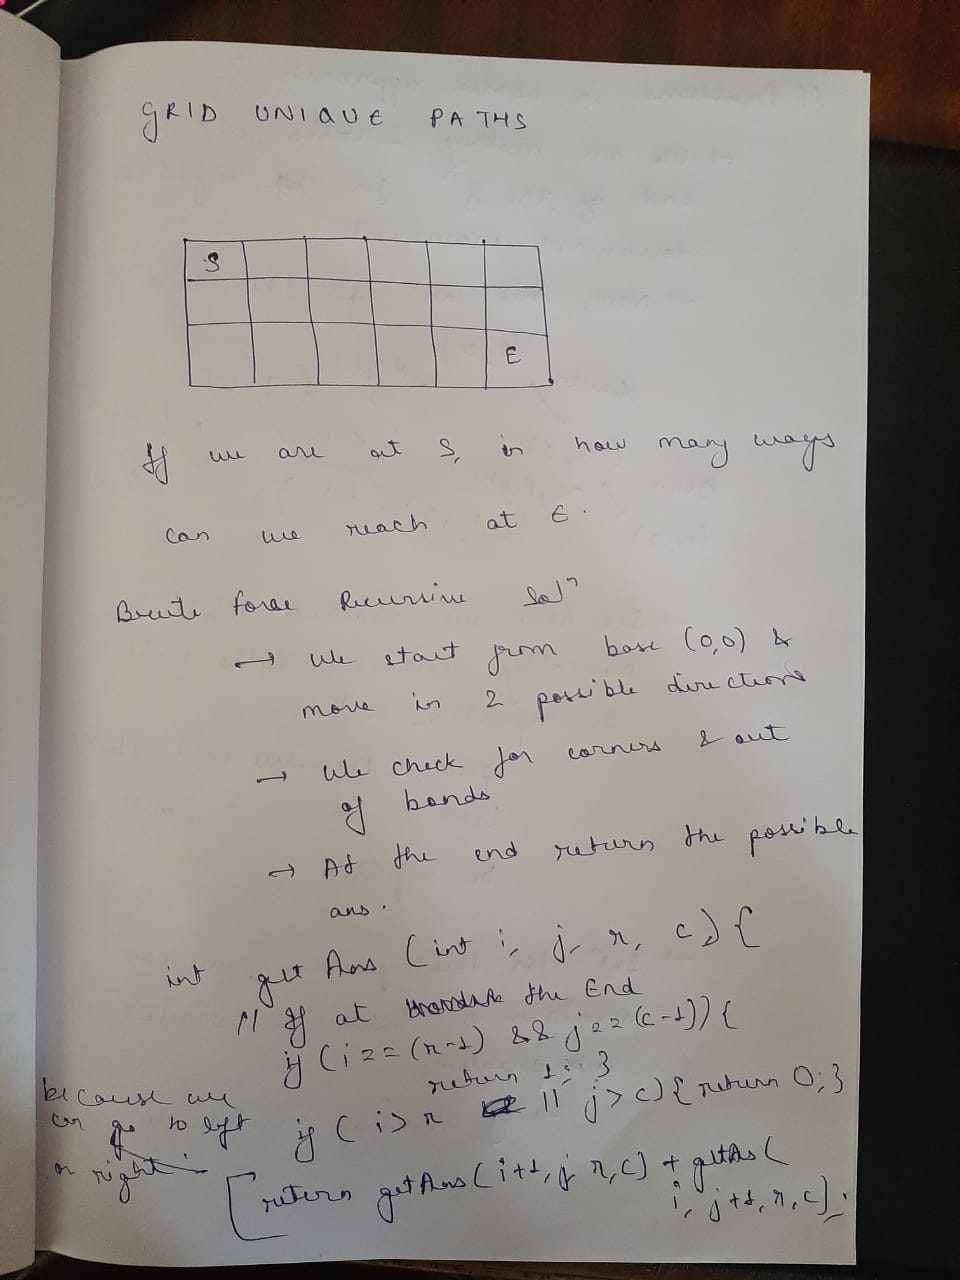 GRID UNIQUE PATHS
S
E
If we are at S, in how many ways
can we reach at E.
Brute force Recursive Solⁿ
→ We start from base (0,0) &
move in 2 possible directions
→ We check for corners & out
of bonds
→ At the end return the possible
ans.
int get Ans (int i, j, r, c) {
// If at the End
if (i == (r-1) && j == (c-1)) {
return 1; }
if (i > r || j > c) { return 0; }
because we
can go to left
or right
return getAns (i+1, j, r, c) + getAns (
i, j+1, r, c);